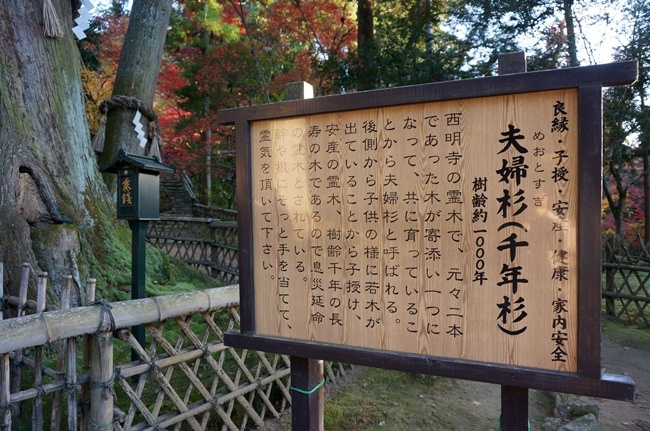 良縁・子授・安産・健康・家内安全
めおとすぎ
夫婦杉(千年杉)
樹齢約一〇〇〇年
西明寺の霊木で、元々二本
であった木が寄添い一つに
なって、共に育っているこ
とから夫婦杉と呼ばれる。
後側から子供の様に若木が
出ていることから子授け、
安産の霊木、樹齢千年の長
寿の木であるので息災延命
の霊木とされている。
幹や根にそっと手を当てて、
霊気を頂いて下さい。
賽銭